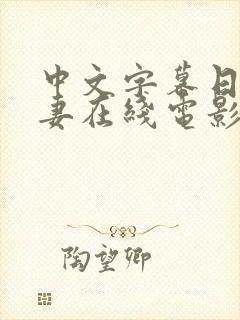 中文字幕日
妻在线电影
陶望卿